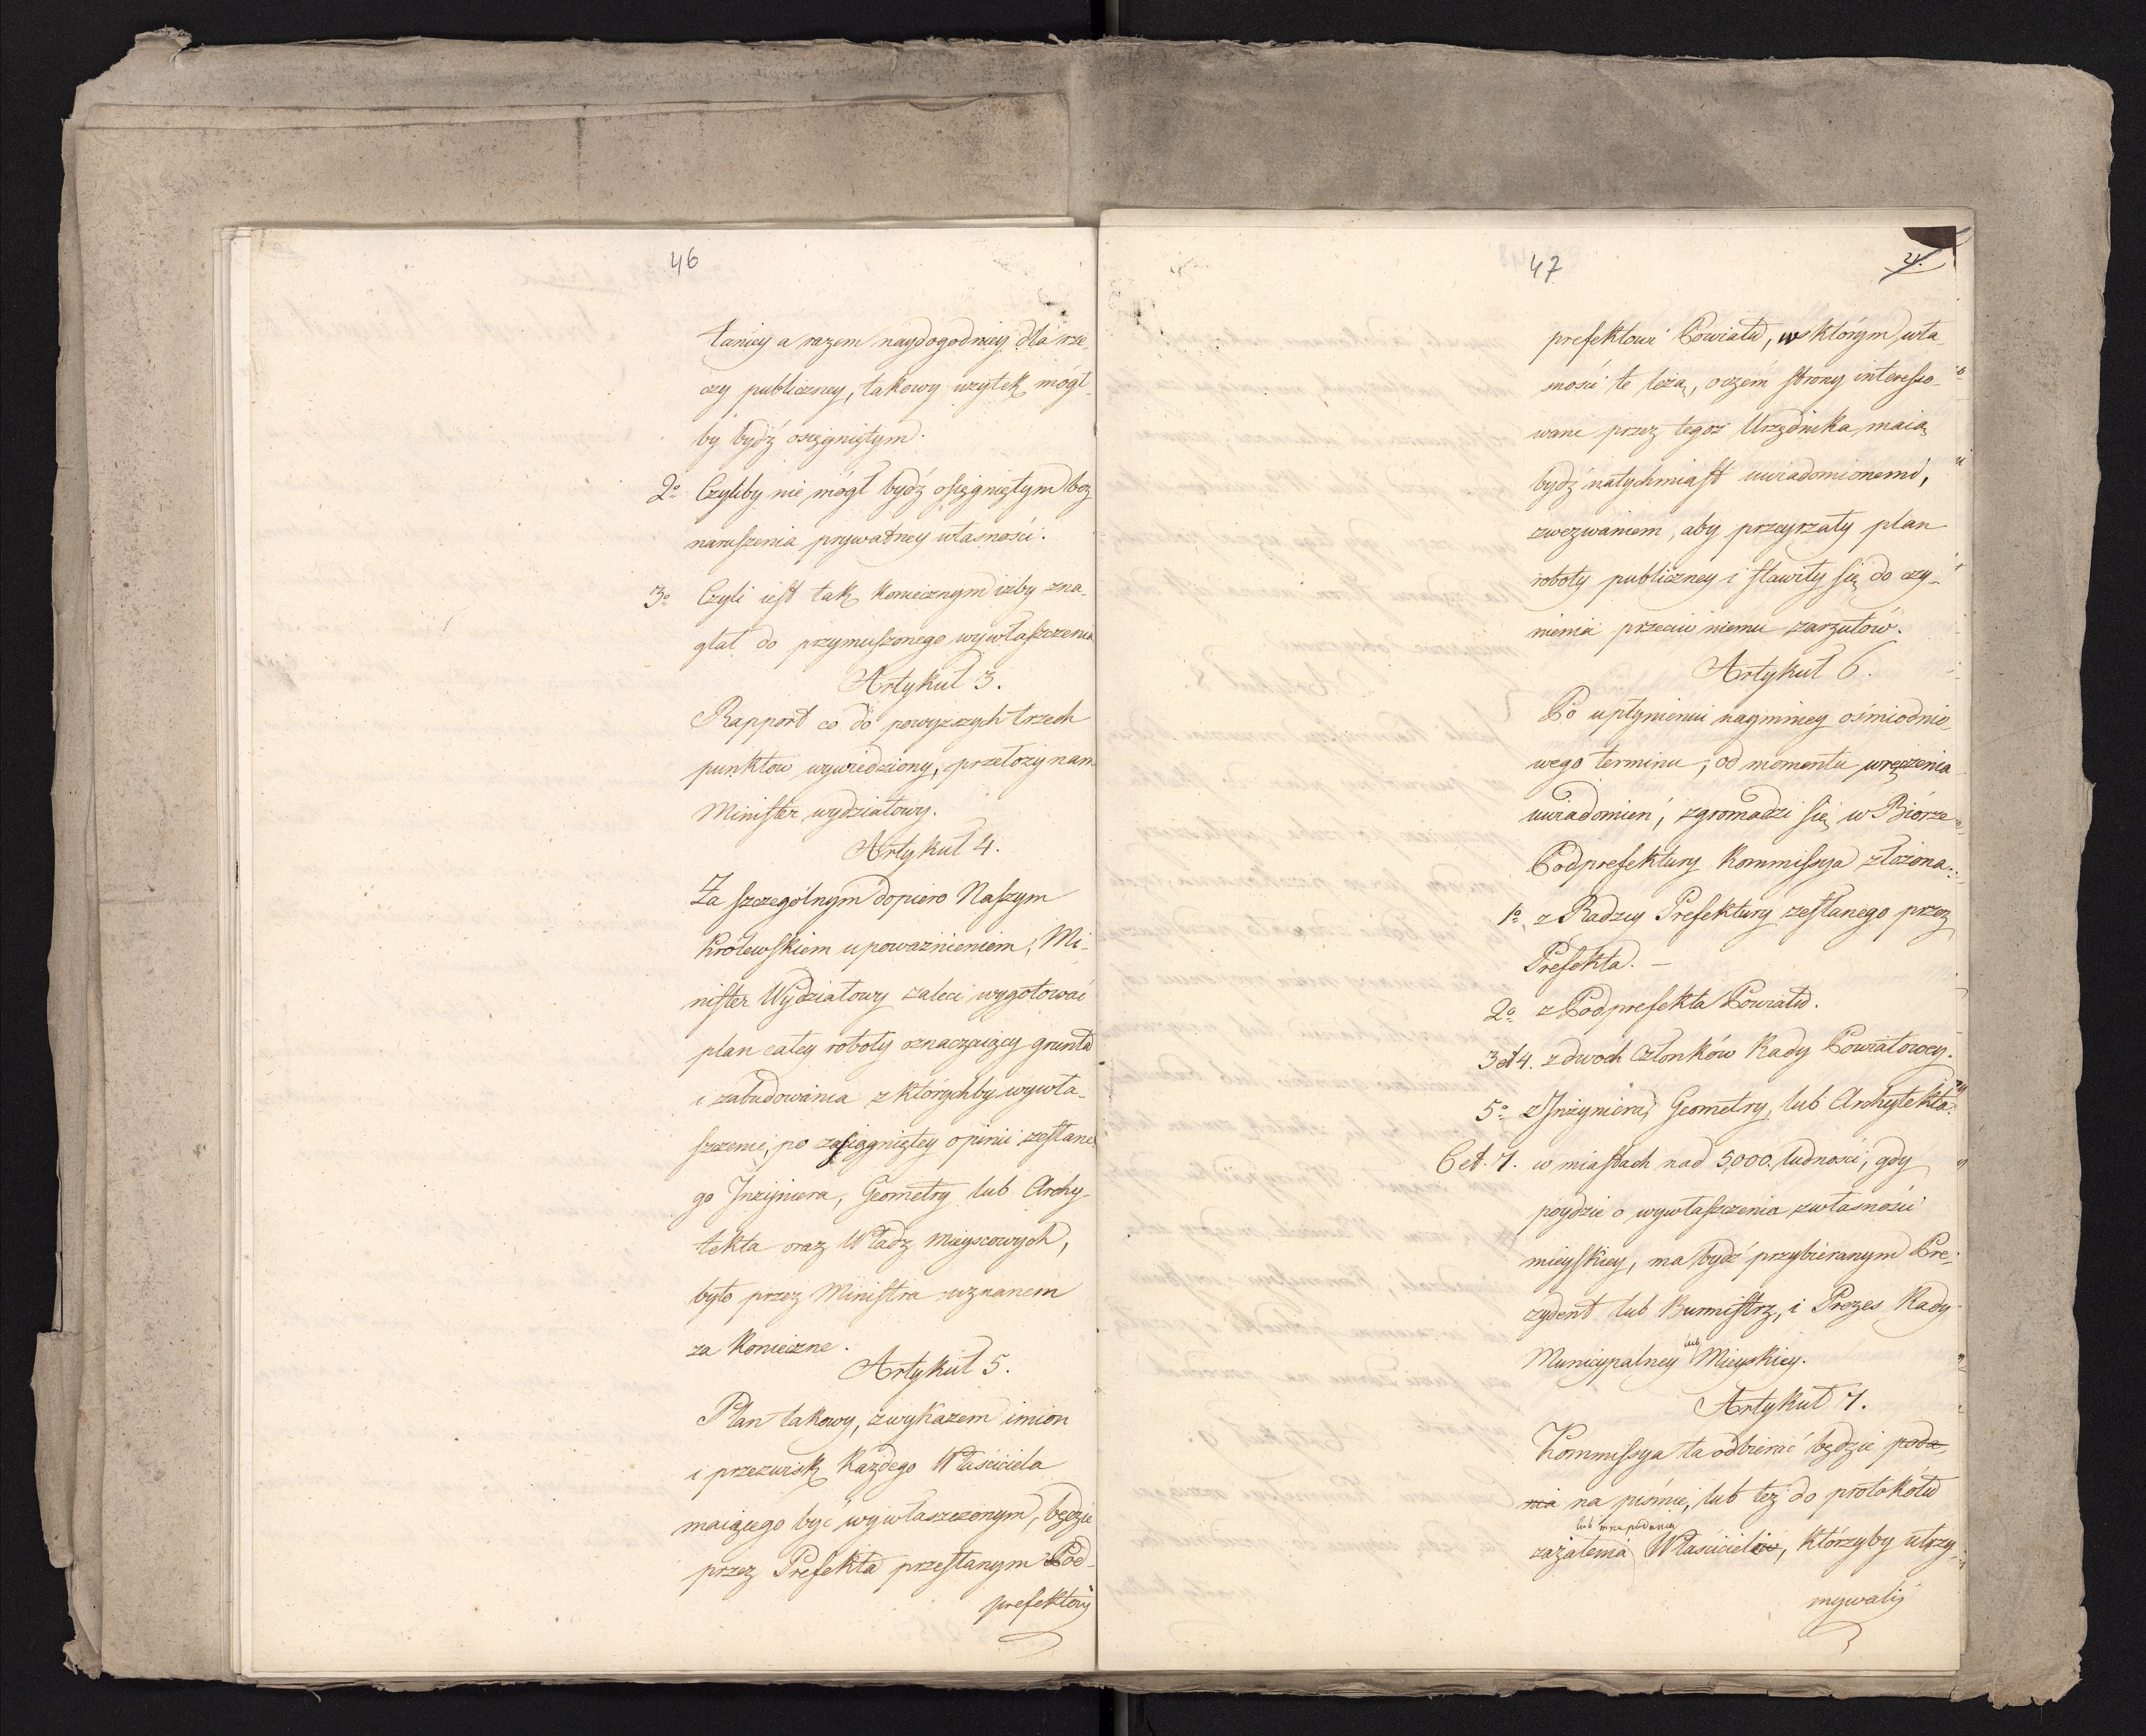 46
taniey a razem naydogodniey dla rze-
czy publiczney, takowy użytek mógł
by bydź osiągniętym.
2o Czyliby nie mógł bydź osiągniętym bez
naruszenia prywatney własności.
3o Czyli iest tak koniecznym iżby zna-
glał do przymuszonego wywłaszczenia
Artykuł 3.
Rapport co do powyższych trzech
punktow wywiedziony, przełoży nam
Minister wydziałowy.
Artykuł 4.
Za szczególnym dopiero Naszym
Krolewskiem upoważnieniem, Mi-
nister Wydziałowy zaleci wygotować
plan całey roboty oznaczaiący grunta
i zabudowania z ktorychby wywła-
szczenie, po zasiągniętey opinii zesłane
go Inżyniera, Geometry lub Archy-
tekta oraz Władz mieyscowych,
było przez Ministra uznanem
za konieczne.
Artykuł 5.
Plan takowy, z wykazem imion
i przezwisk każdego Właściciela
maiącego być wywłaszczonym, będzie
przez Prefekta przesłanym Pod-
prefektowi
47
21.
prefektowi Powiatu, w którym wła-
sności te leżą, o czem strony interesso-
wane przez tegoż Urzędnika maią
bydź natychmiast uwiadomionemi,
z wezwaniem, aby przeyrzały plan
roboty publiczney i stawiły się do czy-
nienia przeciw niemu zarzutów.
Artykuł 6.
Po upłynieniu naymniey ośmiodnio-
wego terminu, od momentu wręczenia
uwiadomień, zgromadzi się w Biórze
Podprefektury Kommissya złożona.
1o z Radzcy Prefektury zesłanego przez
Prefekta. –
2o z Podprefekta Powiatu.
3 et 4. z dwóch Członków Rady Powiatowey.
5o z Inżyniera, Geometry, lub Archytekta.
6 et. 7. w miastach nad 5,000. ludności, gdy
poydzie o wywłaszczenia z własności
mieyskiey, ma bydź przybieranym Pre-
zydent lub Burmistrz, i Prezes Rady
Municypalney lub Mieyskiey.
Artykuł 7.
Kommissya ta odbierać będzie poda-
nia na piśmie, lub też do protokółu
lub inne podania
zażalenia Właścicielów, którzyby utrzy-
mywali